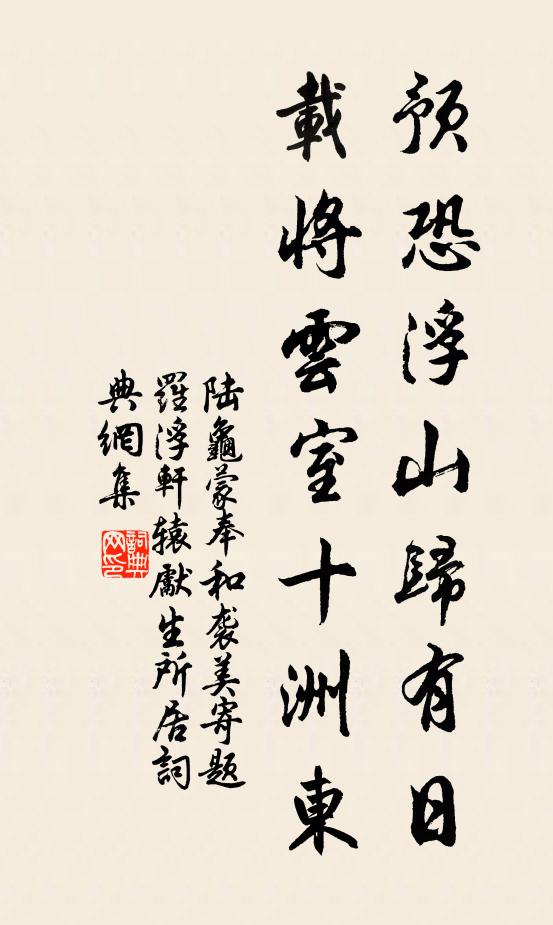 預恐浮山歸有日
載將雲室十洲東
陆龜蒙奉和袭美寄题
羅浮軒辕獻生所居詞
典網集
詞典
网印